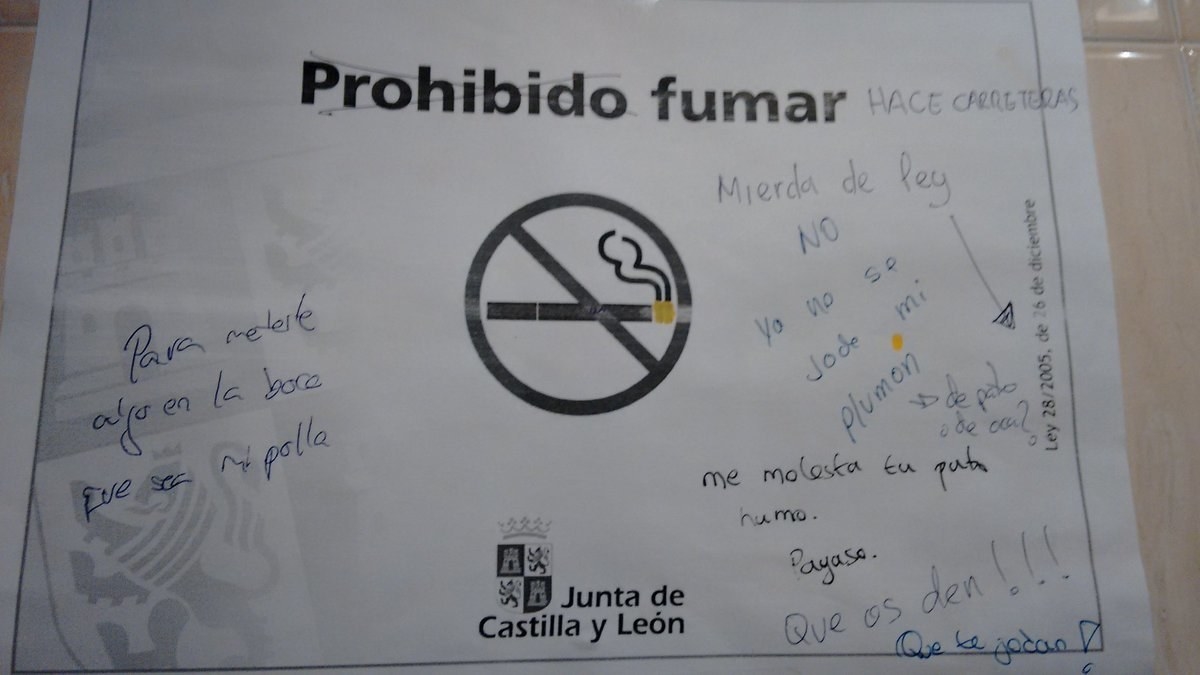 Prohibido fumar HACE CARRETERAS
Mierda de ley
NO
Yo no se
Jode mi
plumón
de pato
o de oca?
Ley 28/2005, de 26 de diciembre
Para meterte
algo en la boca
que sea mi polla
me molesta tu puto
humo.
Payaso.
Que os den!!!
Que te jodan!
Junta de
Castilla y León